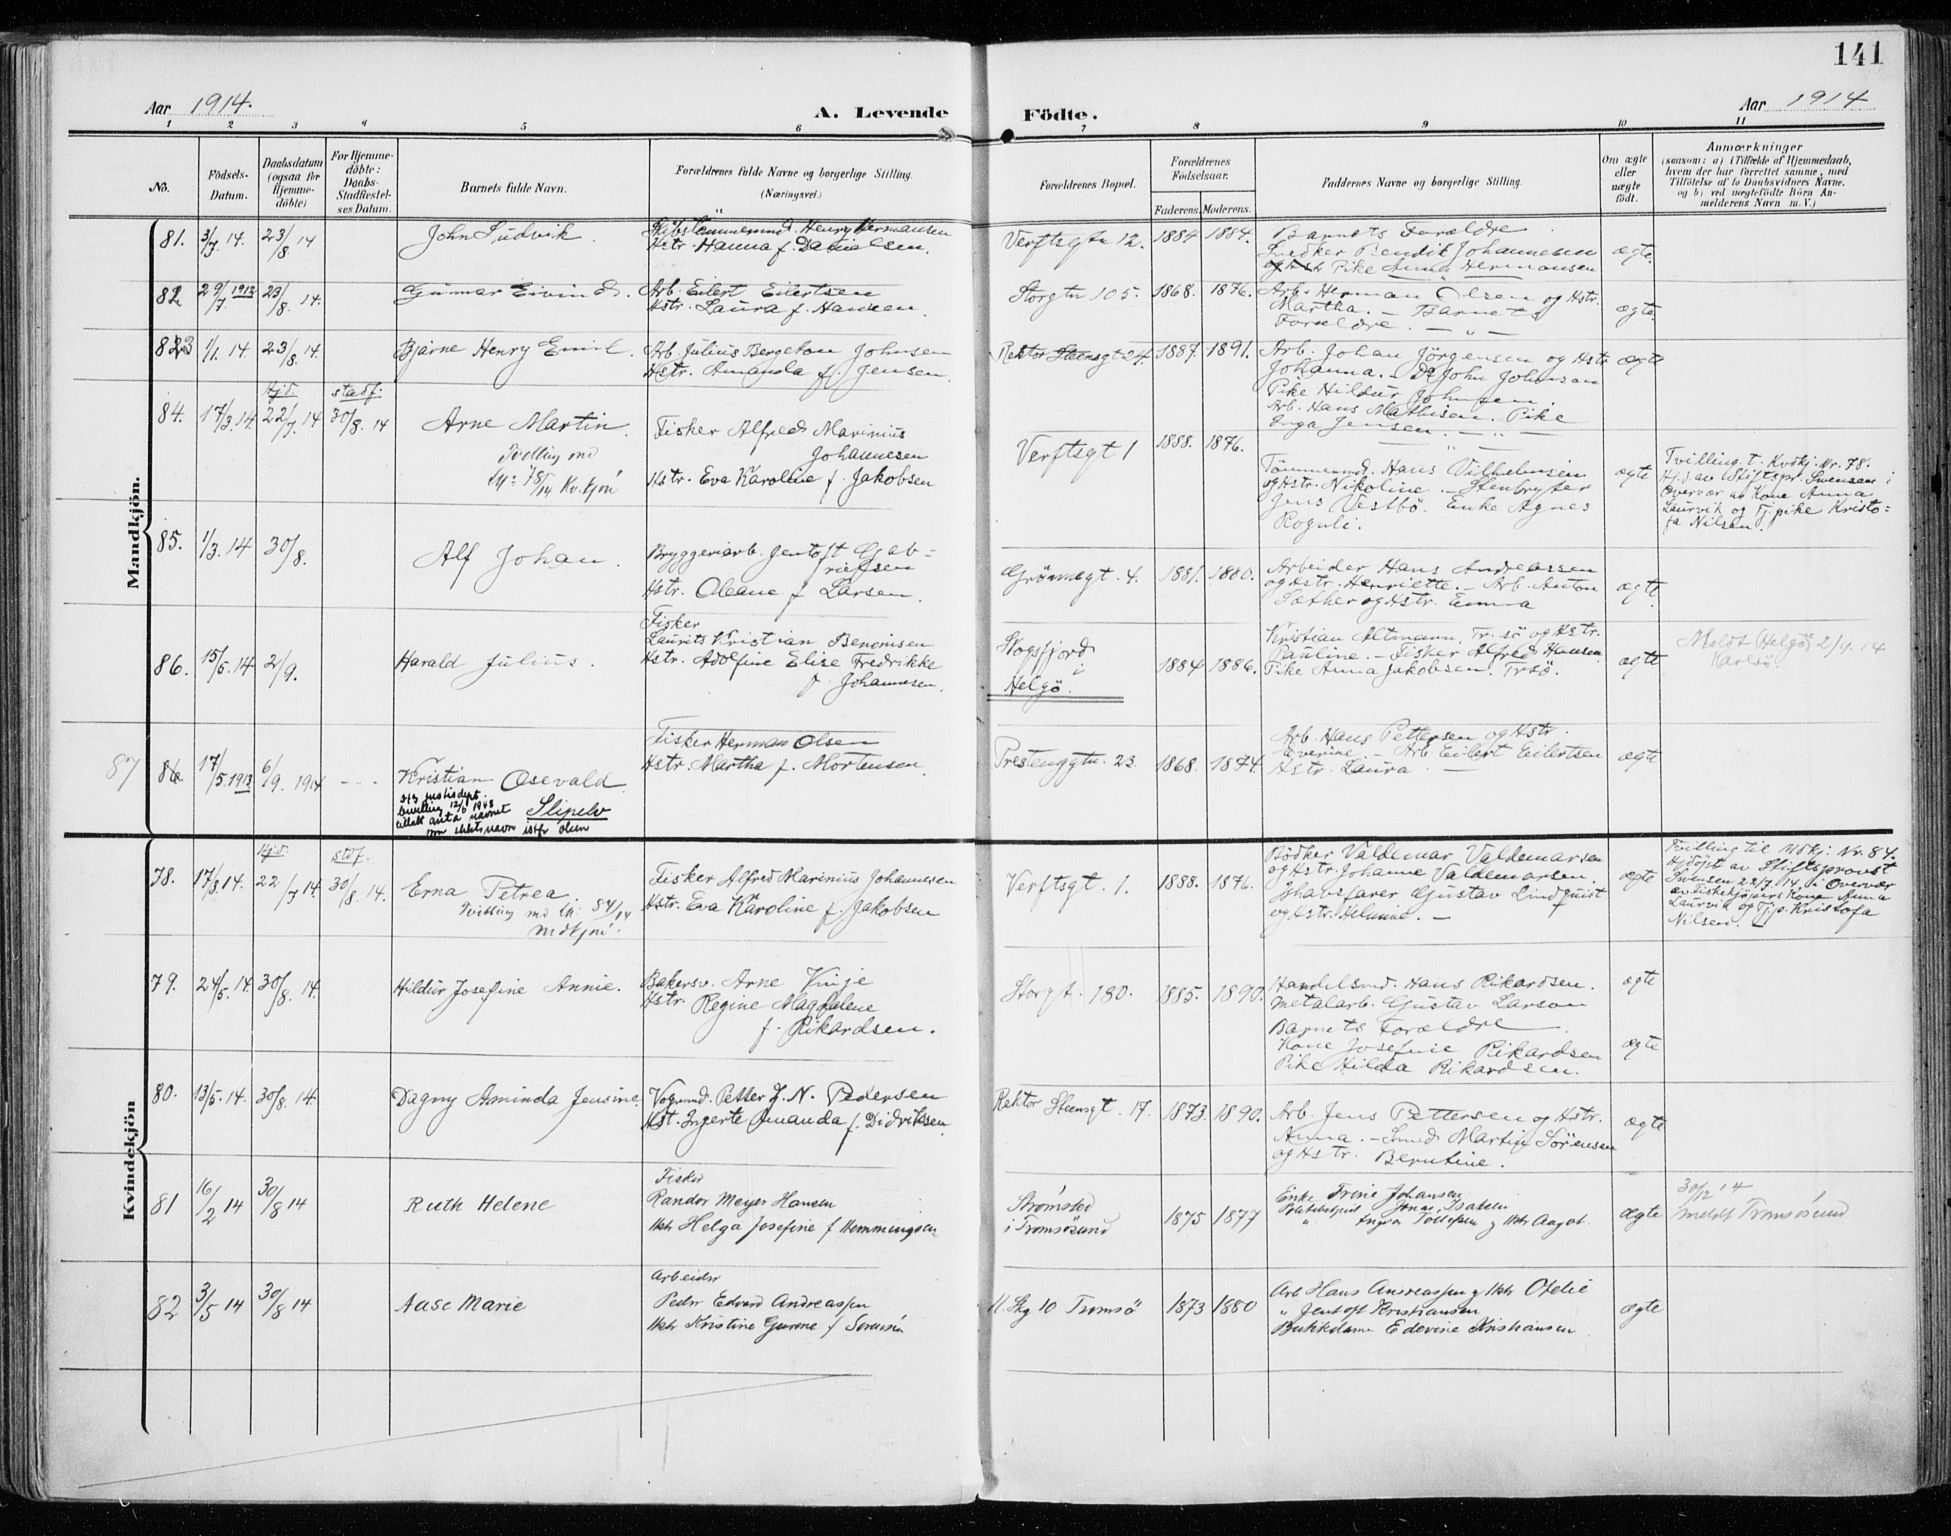 141
Aar 1914.
A. Levende Födte.
Aar 1914
1 2 3 4 5 6 7 8 9 10 11
No.
Födsels-
Datum.
Daabsdatum
(ogsaa for
Hjemme-
döbte)
For Hjemme-
döbte:
Daabs-
Stadfæstel-
ses Datum.
Barnets fulde Navn.
Forældrenes fulde Navne og borgerlige Stilling.
(Næringsvei.)
Forældrenes Bopæl.
Forældrenes
Födselsaar.
Faderens. Moderens.
Faddernes Navne og borgerlige Stilling.
Om ægte
eller
uægte
födt.
Anmærkninger
(saasom: a) i Tilfælde af Hjemmedaab,
hvem der har forrettet samme, med
Tilföielse af to Daabsvidners Navne,
og b) ved uegtefödte Börn An-
melderens Navn m. V.)
Mandkjön.
81. 3/7. 14. 23/8 14 John Ludvik.
Skibstömmermd. Henry Hermansen
Hstr. Hanna f. Danielsen.
Verftsgtn 12. 1884 1884.
Barnets Forældre
Snedker Bendik Johannesen
Pike Anna Hermansen
ægte.
82 29/7 1912 23/8 14. Gunnar Eivind.
Arb. Eilert Eilertsen
Hstr. Laura f. Hansen.
Storgtn 105. 1868. 1876.
Arb. Herman Olsen og Hstr.
Martha. – Barnets
Forældre. – " –
ægte.
83 1/1. 14 23/8 14. Bjarne Henry Emil.
Arb. Julius Bergeton Johnsen
Hstr. Amanda f. Jensen.
Rektor Steensgt 24. 1887. 1891.
Arb. Johan Jörgensen og Hstr
Johanna. – John Johnsen
Pike Hildur Johnsen.
Arb. Hans Mathisen. Pike
Inga Jensen. – " –
ægte
84. 17/3. 14. Hjd. 22/7 14 stadf. 30/8. 14 Arne Martin.
Tvilling md
No 78/14 Kv.kjön
Fisker Alfred Marinius
Johannesen
Hstr. Eva Karoline f. Jakobsen
Verftsgt 1 1888. 1876.
Tömmermd. Hans Vilhelmsen
og Hstr. Nikoline. – Stenbryter
Jens Vestbö. Enke Agnes
ægte
Tvilling t. Kvdkj. Nr. 78.
Hj.d. av Stiftspr. Swensen i
Overvær av Kone Anna
Laurvik og Tj.pike Kristo-
fa Nilsen.
85. 1/3. 14 30/8. Alf Johan.
Bryggeriarb. Jentoft Gab-
rielsen
Hstr. Oleane f Larsen.
Grönnegt. 4. 1881. 1880.
Arbeider Hans Andreassen
og Hstr. Henriette. – Arb. Anton
Sæther og Hstr. Emma
ægte.
86. 15/5. 14 2/9. Harald Julius.
Fisker
Laurits Kristian Benonisen
Hstr. Adolfine Elise Fredrikke
f. Johannesen.
Skogsfjord
i
Helgö.
1884 1886.
Kristian Altmann, Tr. sö og Hstr.
Pauline. – Fisker Alfred Hansen.
Pike Anna Jakobsen. Trsö.
ægte
Meldt Helgöy 2/9. 14
Karlsö
87 86 17/5. 1913 6/9. 1914 – – – Kristian Osevald
Slipelv
Fisker Herman Olsen
Hstr. Martha f. Mortensen.
Prestenggtn. 23. 1868. 1874.
Arb. Hans Pettersen og Hstr.
Everine. – Arb. Eilert Eilertsen
Hstr. Laura. –
ægte
Kvindekjön
78. 17/3. 14. Hjd. 22/7 14. stdf. 30/8. 14. Erna Petrea
Tvilling md No. 84/14
Mdkjön.
Fisker Alfred Marinius Johannesen
Hstr. Eva Karoline f. Jakobsen
Verftsgt. 1. 1888. 1876.
Bödker Valdemar Valdemarsen
og Hstr. Johanne Valdemarsen.
Gustav Lindquist
og Hstr. Helmine. –
ægte
Tvilling til Mdkj. Nr. 84.
Hjdöpt av Stiftsprovst
Svensen 22/7. 14. i Overvær
av Fiskekjöpers Kone Anna
Laurvik og Tjp. Kristofa
Nilsen.
79. 24/5. 14. 30/8. 14. Hildur Josefine Annie.
Bakersv. Arne Vinje
Hstr. Regine Magdalene
f. Rikardsen.
Storgt. 130. 1885. 1890.
Handelsmd. Hans Rikardsen.
Metalarb. Gustav Larson
Barnets Forældre
Kone Josefine Rikardsen
Pike Hilda Rikardsen.
ægte
ægte
80. 13/5. 14. 30/8. 14. Dagny Aminda Jensine.
Vognmd. Petter J. N. Pedersen
Hst. Ingerte Amanda f. Didriksen
Rektor Steensgt. 17. 1873. 1890.
Arb. Jens Pettersen og Hstr.
Anna. – Smed Martin Sörensen
og Hstr. Berntine.
ægte
81 16/2 14 30/8 14 Ruth Helene
Fisker
Randor Meyer Hansen
Hstr Helga Josefine f Hemmingsen
Strömsted
i Tromsösund
1875 1877
Enke Trine Johansen
Jonas Isaksen
" Ingvar Tollefsen g Hstr Aagot.
ægte
30/12 14
meldt Tromsösund
82 3/5 14 30/8 14 Aase Marie
Arbeider
Peder Edvard Andreassen
Hstr Kristine Gurine f Sörensen
N. Skg 10 Tromsö 1873 1880
Arb Hans Andreassen g Hstr Otelie
" Jentoft Kristiansen
Butikdame Edevine Kristiansen
ægte